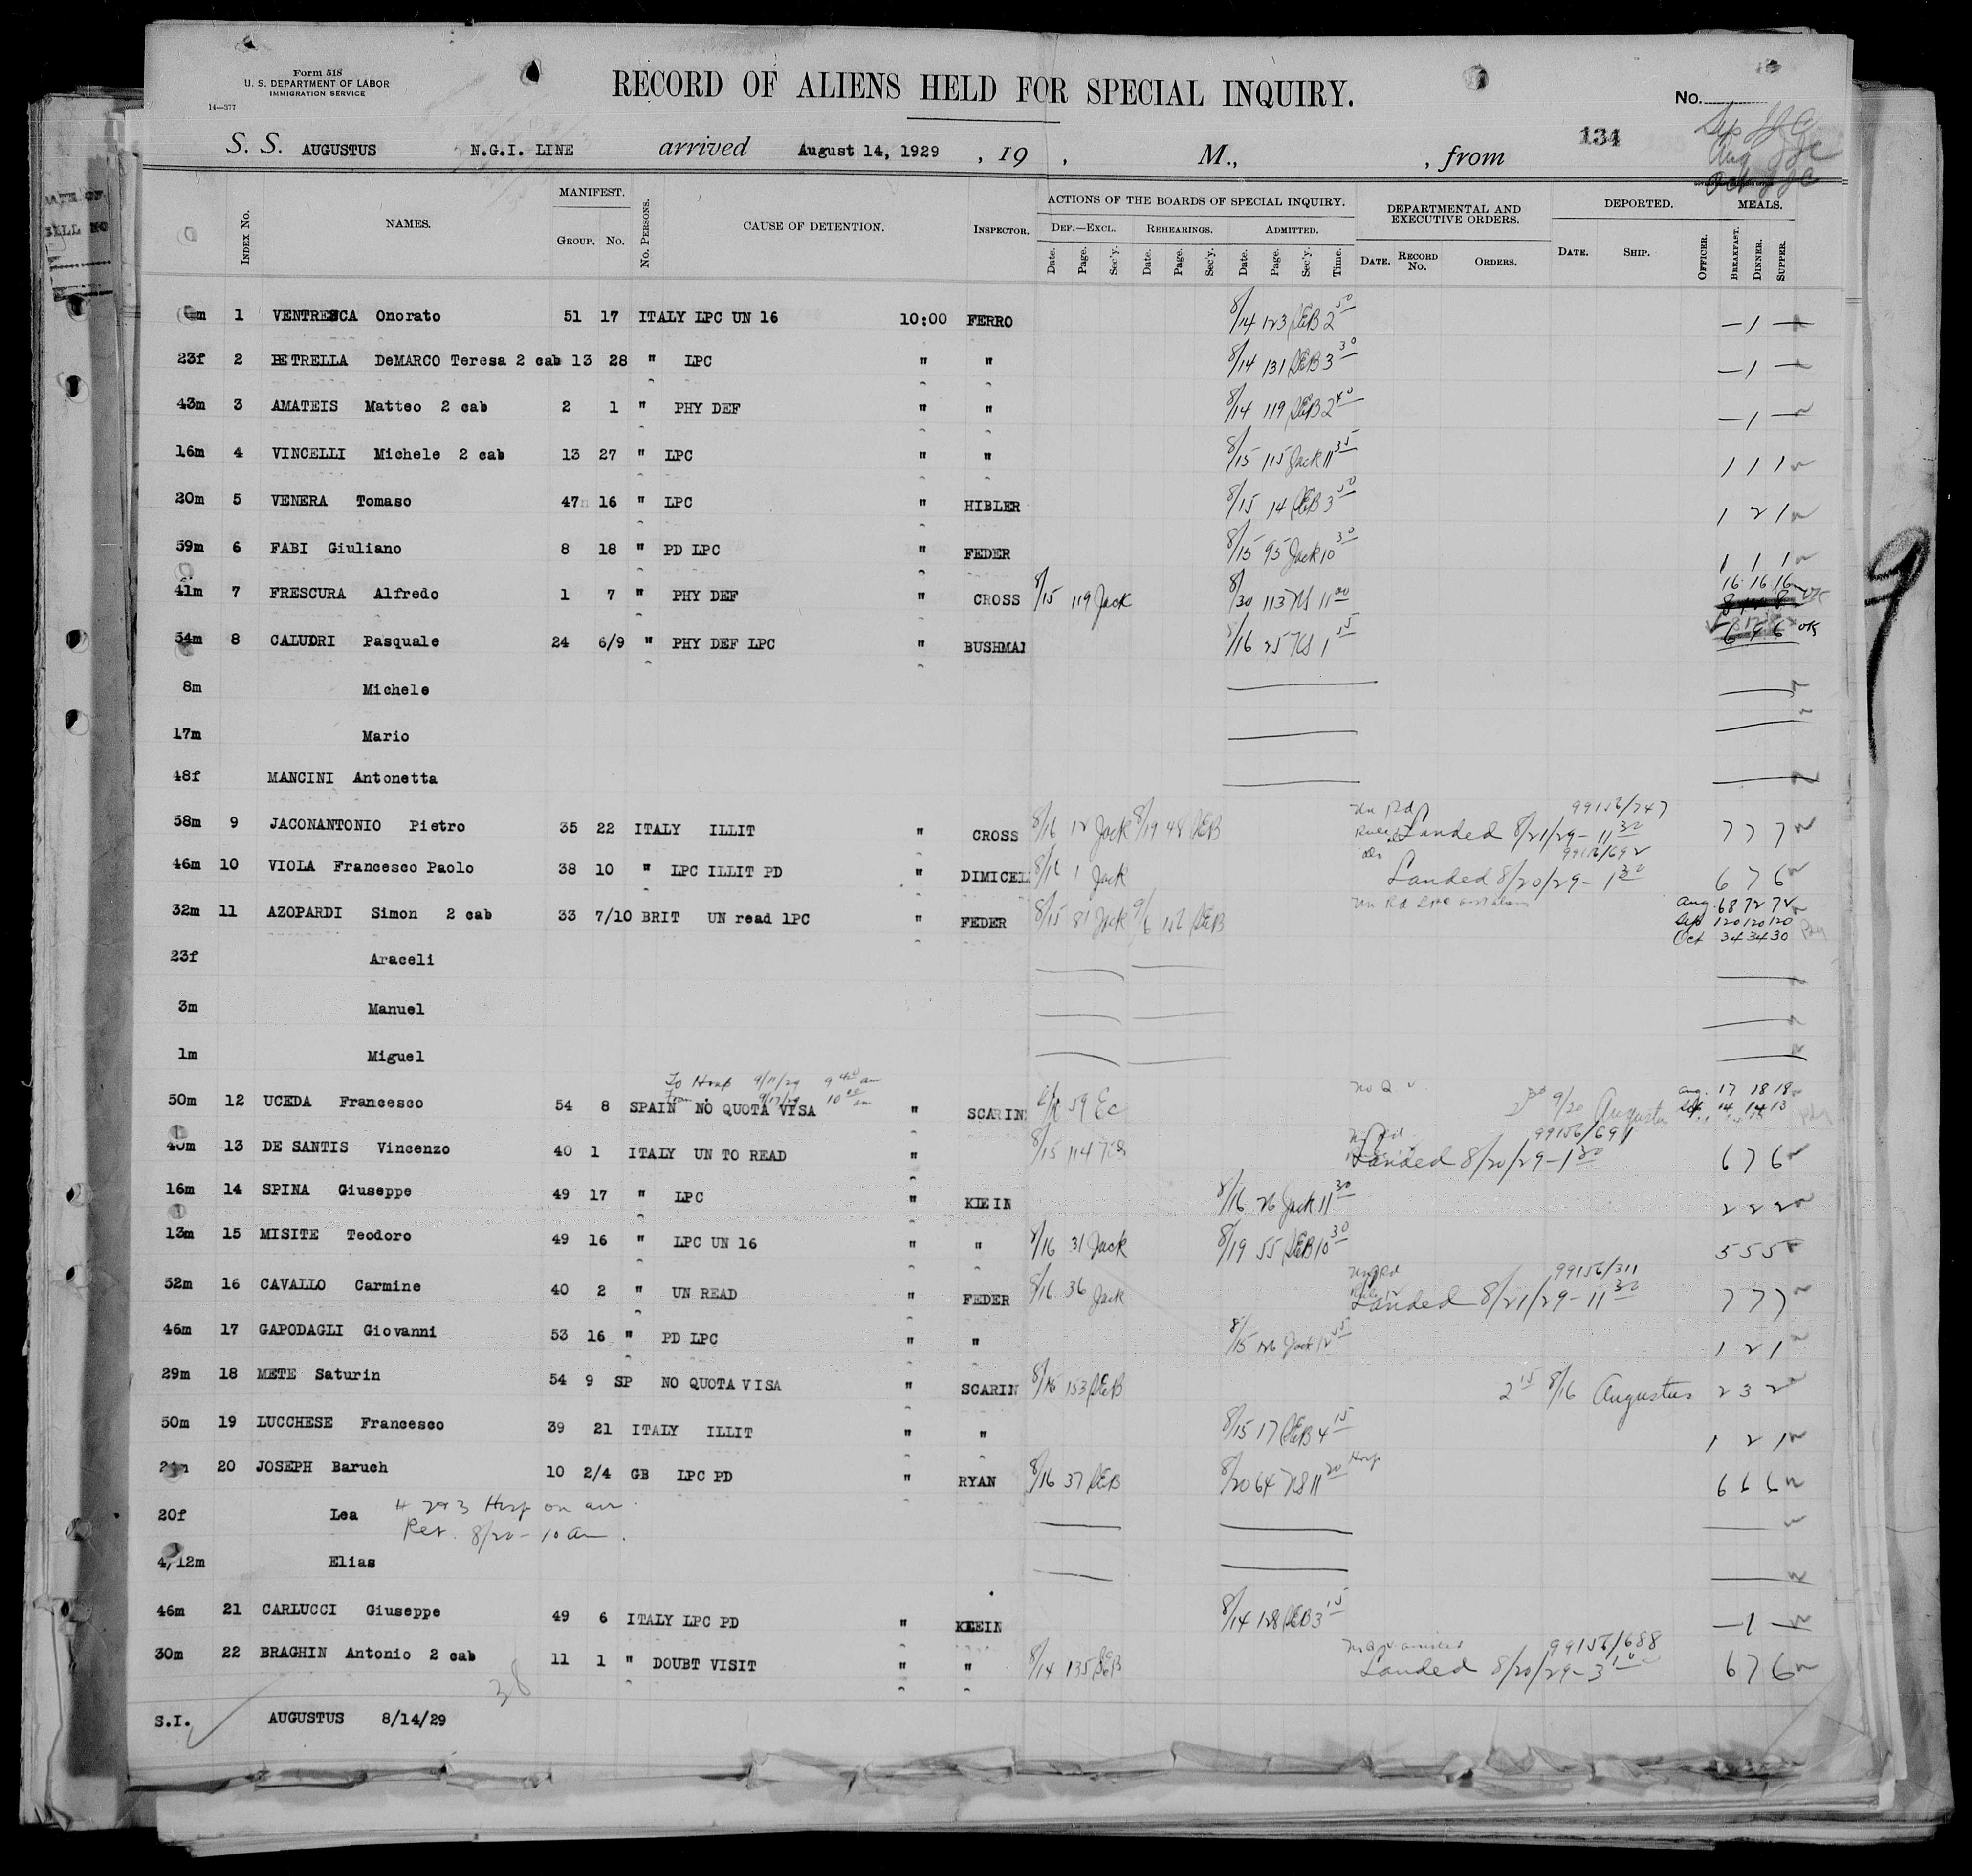 Form 518
U. S. DEPARTMENT OF LABOR
IMMIGRATION SERVICE
14—377
RECORD OF ALIENS HELD FOR SPECIAL INQUIRY.
No.
134
S. S. AUGUSTUS N.G.I. LINE arrived August 14, 1929 , 19 , M., , from
Index No. NAMES. MANIFEST. Group. No. No. Persons. CAUSE OF DETENTION. Inspector. ACTIONS OF THE BOARDS OF SPECIAL INQUIRY. Def.—Excl. Date. Page. Sec'y. Rehearings. Date. Page. Sec'y. Admitted. Date. Page. Sec'y. Time. DEPARTMENTAL AND EXECUTIVE ORDERS. Date. Record No. Orders. DEPORTED. Date. Ship. MEALS. Officer. Breakfast. Dinner. Supper.
m 1 VENTRESCA Onorato 51 17 ITALY LPC UN 16 10:00 FERRO 8/14 123 DEB 2 50 — 1 —
23f 2 PETRELLA DeMARCO Teresa 2 cab 13 28 " LPC " " 8/14 131 DEB 3 30 — 1 —
43m 3 AMATEIS Matteo 2 cab 2 1 " PHY DEF " " 8/14 119 DEB 2 40 — 1 —
16m 4 VINCELLI Michele 2 cab 13 27 " LPC " " 8/15 115 Jack 11 35 1 1 1
20m 5 VENERA Tomaso 47 16 " LPC " HIBLER 8/15 14 DEB 3 50 1 2 1
59m 6 FABI Giuliano 8 18 " PD LPC " FEDER 8/15 95 Jack 10 30 1 1 1
41m 7 FRESCURA Alfredo 1 7 " PHY DEF " CROSS 8/15 119 Jack 8/30 113 NS 11 00 16 16 16 OK
54m 8 CALUORI Pasquale 24 6/9 " PHY DEF LPC " BUSHMAN 8/16 25 NS 1 55 6 9 6 OK
8m Michele
17m Mario
48f MANCINI Antonetta
58m 9 JACONANTONIO Pietro 35 22 ITALY ILLIT " CROSS 8/16 12 Jack 8/19 48 DEB 99156/747 Landed 8/21/29 - 11 30 7 7 7
46m 10 VIOLA Francesco Paolo 38 10 " LPC ILLIT PD " DIMICEL 8/16 1 Jack 99156/692 Landed 8/20/29 - 1 30 6 7 6
32m 11 AZOPARDI Simon 2 cab 33 7/10 BRIT UN read lPC " FEDER 8/15 81 Jack 9/6 156 DEB Aug. 68 72 72
Sep 120 120 120
Oct 34 34 30
23f Araceli
3m Manuel
1m Miguel
To Hosp 9/11/29 9 40 am
From " 9/17/29 10 00 am
50m 12 UCEDA Francesco 54 8 SPAIN NO QUOTA VISA " SCARIN 59 Ec 9/20 Augustus Aug. 17 18 18
Sep 14 14 13
40m 13 DE SANTIS Vincenzo 40 1 ITALY UN TO READ " 8/15 114 99156/691 Landed 8/20/29 - 1 30 6 7 6
16m 14 SPINA Giuseppe 49 17 " LPC " KLEIN 8/16 26 Jack 11 30 2 2 2
13m 15 MISITE Teodoro 49 16 " LPC UN 16 " " 8/16 31 Jack 8/19 55 DEB 10 30 5 5 5
52m 16 CAVALLO Carmine 40 2 " UN READ " FEDER 8/16 36 Jack 99156/311 Landed 8/21/29 - 11 30 7 7 7
46m 17 GAPODAGLI Giovanni 53 16 " PD LPC " " 8/15 126 Jack 12 55 1 2 1
29m 18 METE Saturin 54 9 SP NO QUOTA VISA " SCARIN 8/15 153 DEB 2 15 8/16 Augustus 2 3 2
50m 19 LUCCHESE Francesco 39 21 ITALY ILLIT " " 8/15 17 DEB 4 15 1 2 1
24m 20 JOSEPH Baruch 10 2/4 GB LPC PD " RYAN 8/16 37 DEB 8/20 64 NS 11 20 Hosp 6 6 6
20f Lea # 2 & 3 Hosp on arr.
Ret. 8/20 - 10 am.
4/12m Elias
46m 21 CARLUCCI Giuseppe 49 6 ITALY LPC PD " KLEIN 8/14 128 DEB 3 15 — 1 —
30m 22 BRAGHIN Antonio 2 cab 11 1 " DOUBT VISIT " " 8/14 135 DEB 99156/688 Landed 8/20/29 - 3 10 6 7 6
38
S.I. AUGUSTUS 8/14/29